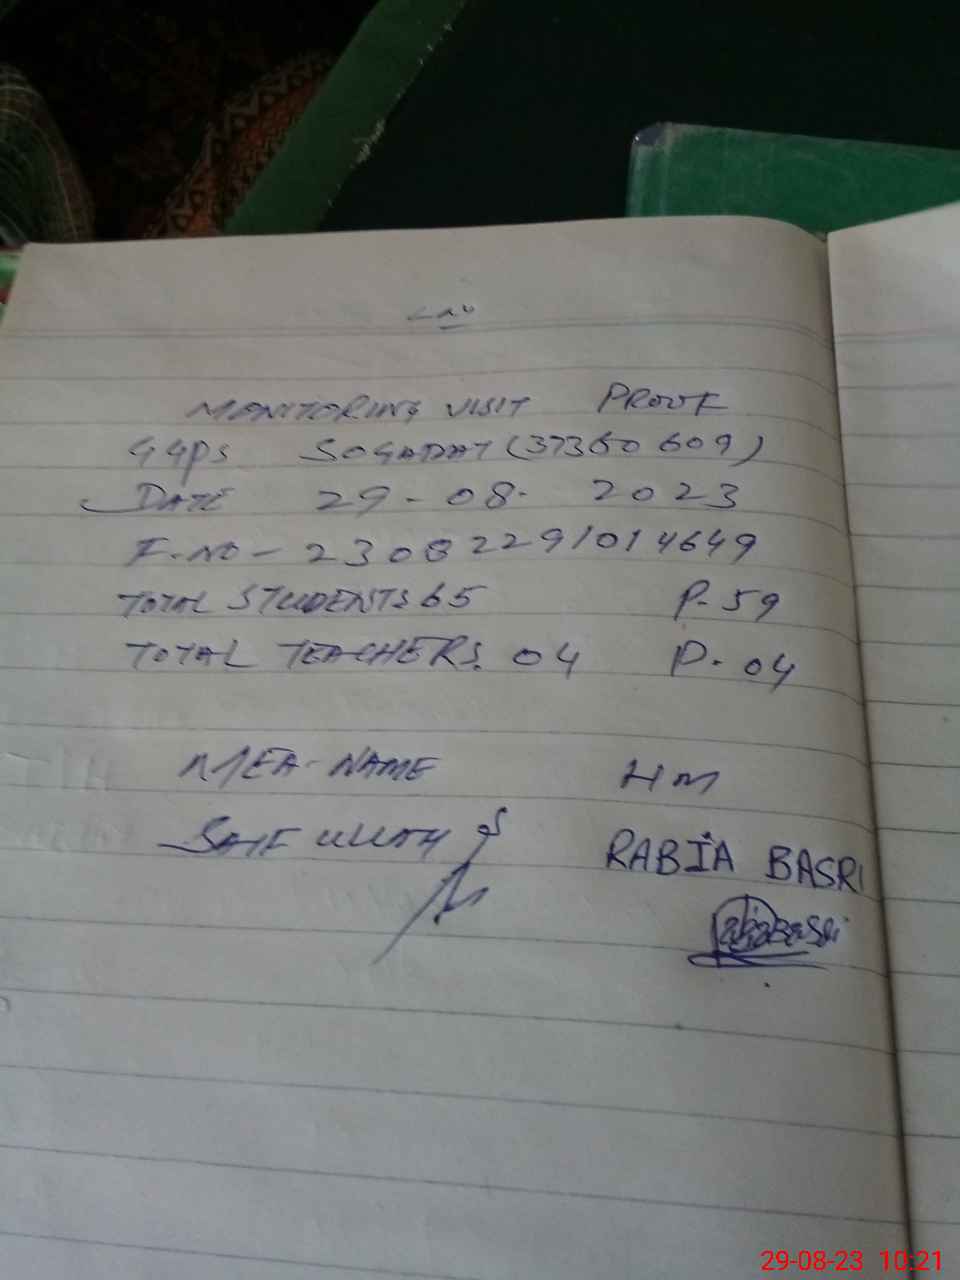 MONITORING VISIT PROOF
GGPS SOGADAT (37360609)
DATE 29-08-2023
F.NO - 23082291014649
TOTAL STUDENTS 65 P-59
TOTAL TEACHERS. 04 P-04
MEA-NAME HM
SAIF ULLAH RABIA BASRI
29-08-23 10:21